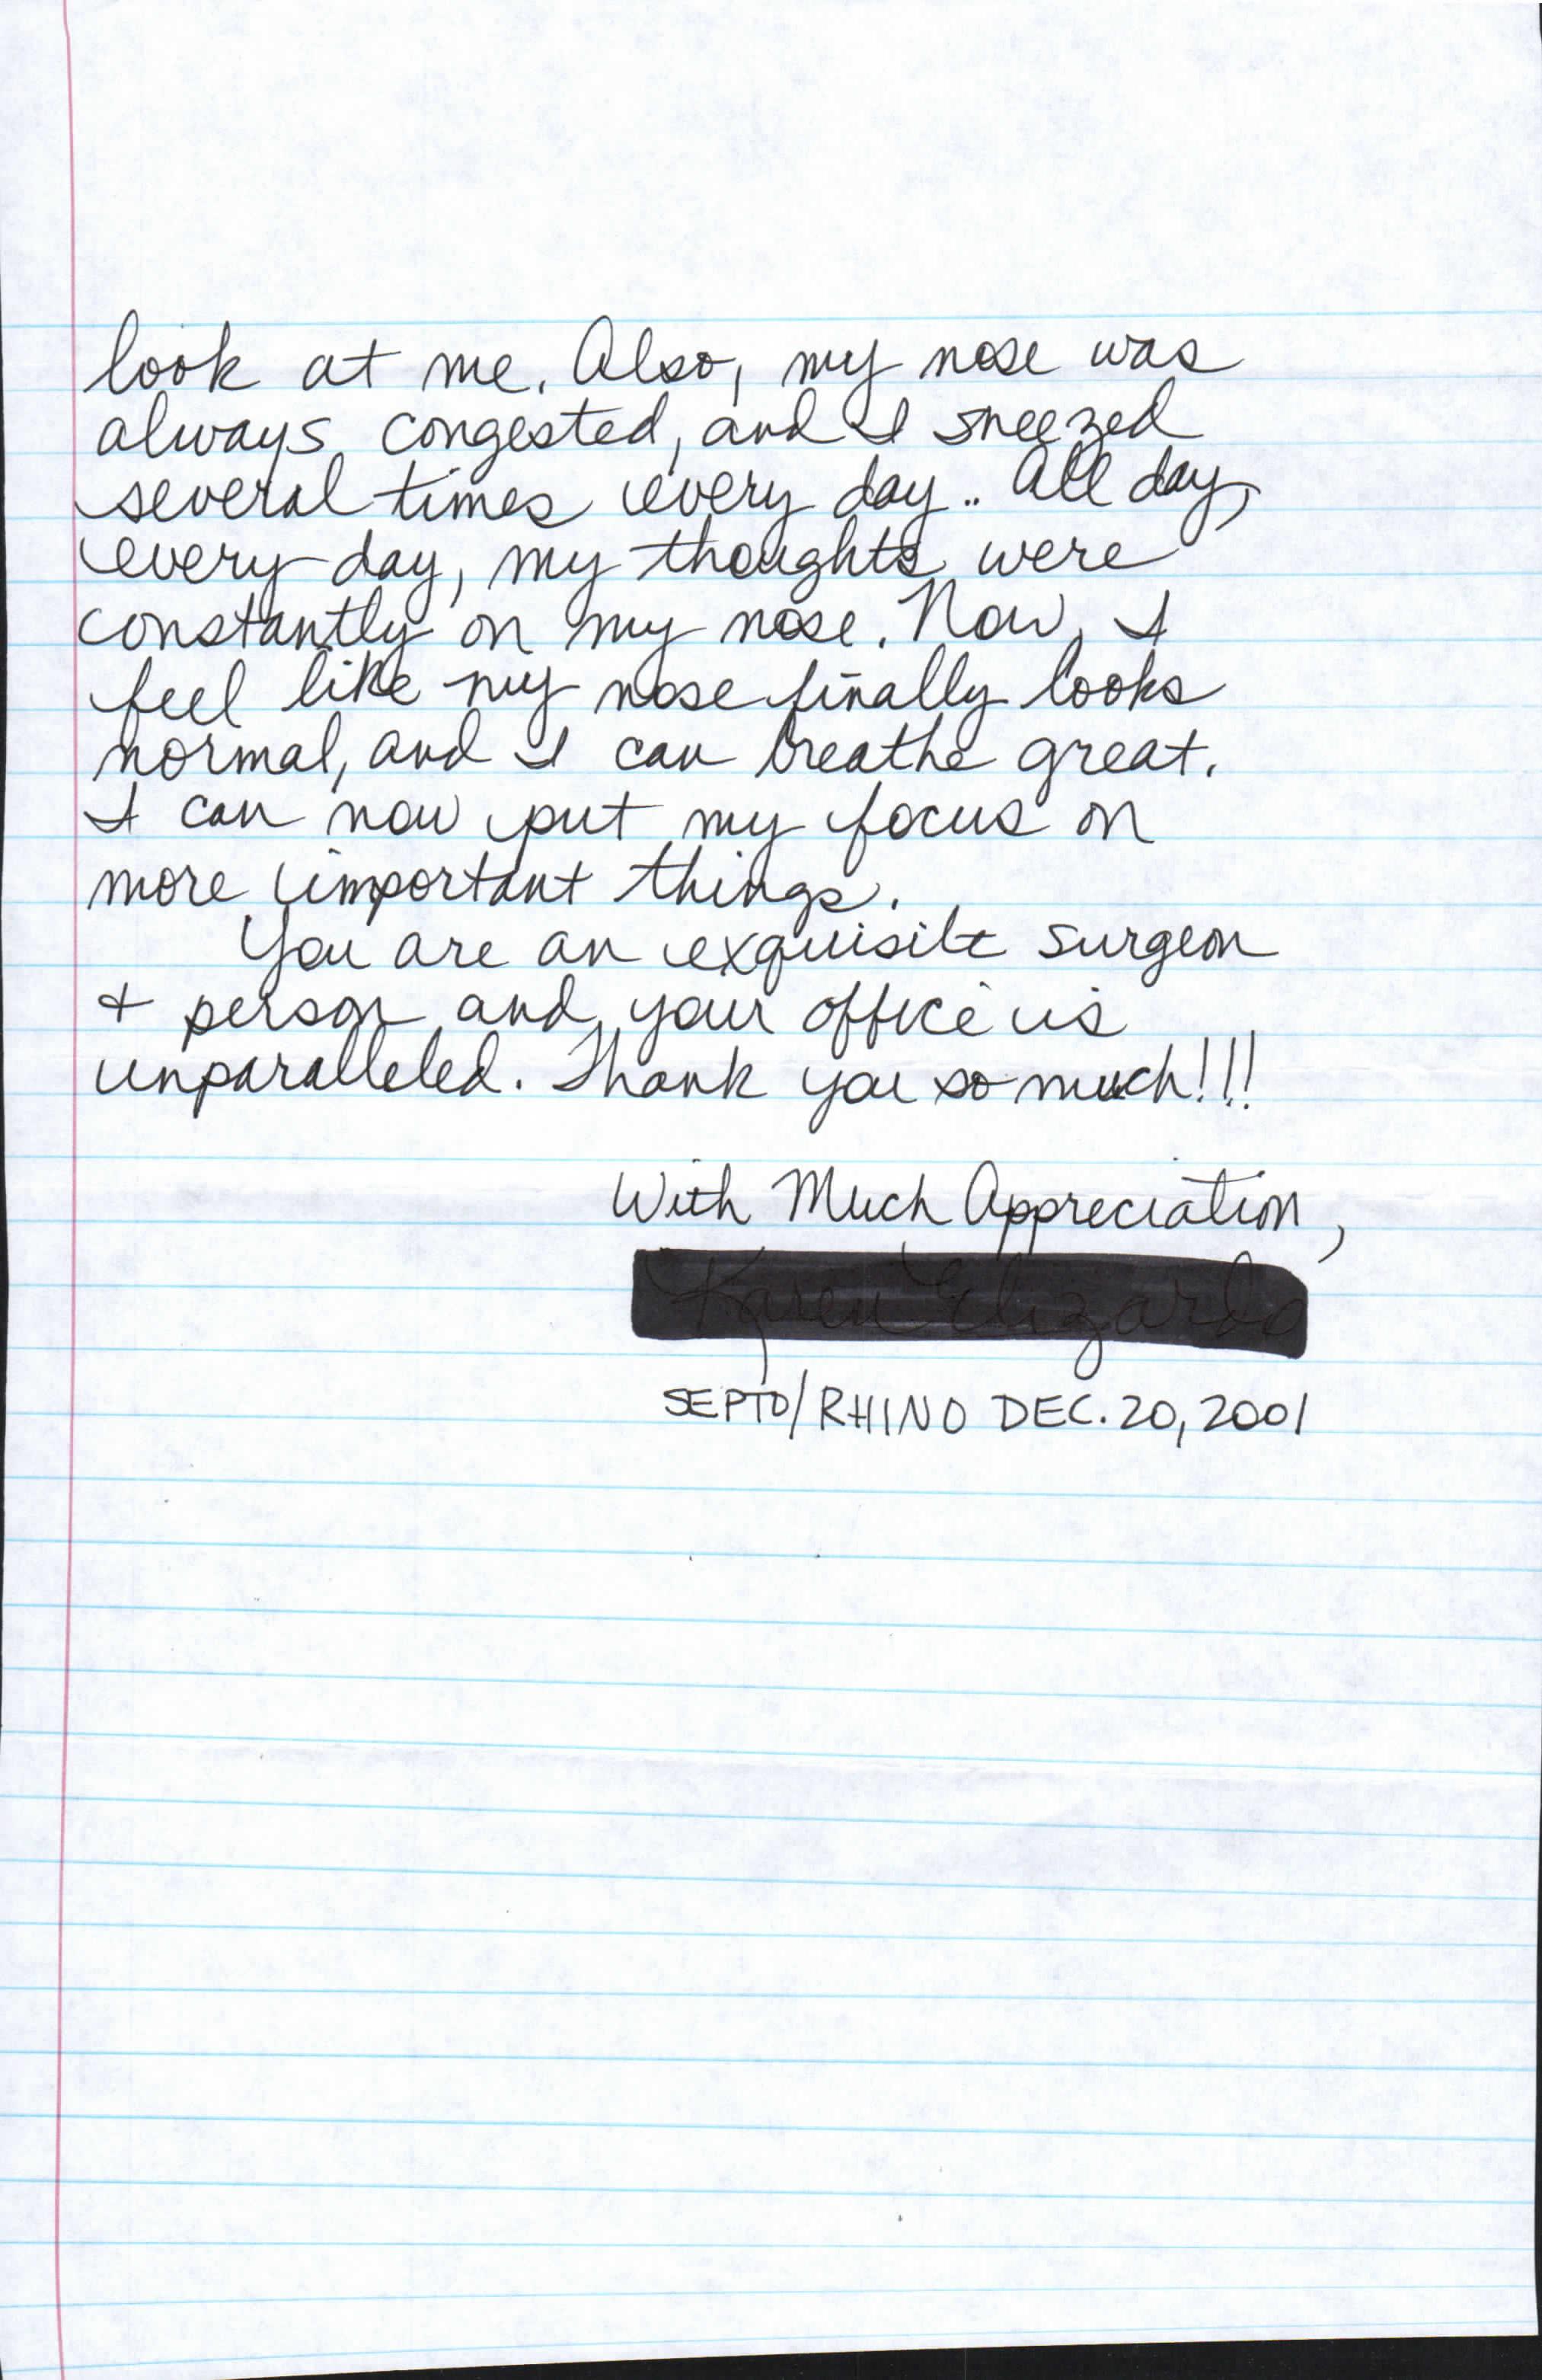 look at me. Also, my nose was
always congested, and I sneezed
several times every day.. All day,
every day, my thoughts were
constantly on my nose. Now, I
feel like my nose finally looks
normal, and I can breathe great.
I can now put my focus on
more important things.
You are an exquisite surgeon
+ person and your office is
unparalleled. Thank you so much!!!
With Much Appreciation,
SEPTO/RHINO DEC. 20, 2001